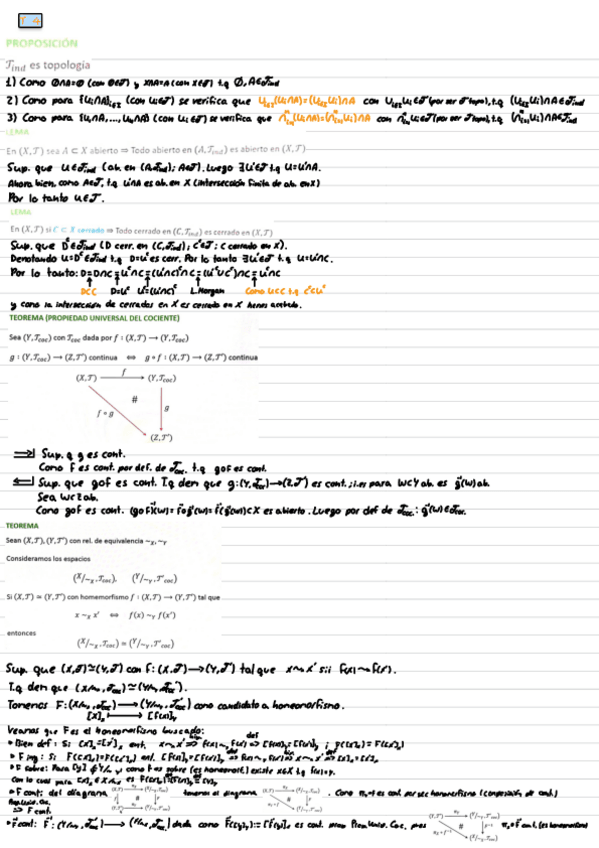 T 4
PROPOSICIÓN
𝒯ind es topología
1) Como ∅∩A=∅ (con ∅∈𝒯) y X∩A=A (con X∈𝒯) t.q ∅,A∈𝒯ind
2) Como para {Ui∩A}i∈I (con Ui∈𝒯) se verifica que Ui∈I(Ui∩A)=(Ui∈I Ui)∩A con Ui∈I Ui∈𝒯 (por ser 𝒯 topo), t.q (Ui∈I Ui)∩A∈𝒯ind
3) Como para {U1∩A,...,Un∩A} (con Ui∈𝒯) se verifica que ∩i=1ⁿ(Ui∩A)=(∩i=1ⁿUi)∩A con ∩i=1ⁿUi∈𝒯 (por ser 𝒯 topo), t.q (∩i=1ⁿUi)∩A∈𝒯ind
LEMA
En (X,𝒯) sea A ⊂ X abierto ⇒ Todo abierto en (A,𝒯ind) es abierto en (X,𝒯)
Sup. que U∈𝒯ind (ab. en (A,𝒯ind); A∈𝒯). Luego ∃U'∈𝒯 t.q U=U'∩A.
Ahora bien, como A∈𝒯, t.q U'∩A es ab. en X (intersección finita de ab. en X)
Por lo tanto U∈𝒯.
LEMA
En (X,𝒯) si C ⊂ X cerrado ⇒ Todo cerrado en (C,𝒯ind) es cerrado en (X,𝒯)
Sup. que Dᶜ∈𝒯ind (D cerr. en (C,𝒯ind); Cᶜ∈𝒯: C cerrado en X).
Denotando U=Dᶜ∈𝒯ind t.q D=Uᶜ es cerr. Por lo tanto ∃U'∈𝒯 t.q U=U'∩C.
Por lo tanto: D=D∩C=Uᶜ∩C=(U'∩C)ᶜ∩C=(U'ᶜ∪Cᶜ)∩C=U'ᶜ∩C
D⊂C D=Uᶜ U=(U'∩C) L.Morgan Como U⊂C t.q Cᶜ⊂Uᶜ
y como la intersección de cerrados en X es cerrado en X hemos acabado.
TEOREMA (PROPIEDAD UNIVERSAL DEL COCIENTE)
Sea (Y,𝒯coc) con 𝒯coc dada por f : (X,𝒯) ⟶ (Y,𝒯coc)
g : (Y,𝒯coc) ⟶ (Z,𝒯') continua ⇔ g ∘ f : (X,𝒯) ⟶ (Z,𝒯') continua
(X,𝒯) f (Y,𝒯coc)
# g
f ∘ g
(Z,𝒯')
⇒ Sup. q g es cont.
Como F es cont. por def. de 𝒯coc. t.q gof es cont.
⇐ Sup. que gof es cont. T.q den que g:(Y,𝒯coc)→(Z,𝒯') es cont.;i.e: para W⊂Y ab. es g⁻¹(W) ab.
Sea W⊂Z ab.
Como gof es cont. (gof)⁻¹(W)=f⁻¹og⁻¹(W)=f⁻¹(g⁻¹(W))⊂X es abierto. Luego por def de 𝒯coc: g⁻¹(W)∈𝒯coc.
TEOREMA
Sean (X,𝒯), (Y,𝒯') con rel. de equivalencia ~X, ~Y
Consideramos los espacios
(X/~X ,𝒯coc), (Y/~Y ,𝒯'coc)
Si (X,𝒯) ≃ (Y,𝒯') con homemorfismo f : (X,𝒯) ⟶ (Y,𝒯') tal que
x ~X x' ⇔ f(x) ~Y f(x')
entonces
(X/~X ,𝒯coc) ≃ (Y/~Y ,𝒯'coc)
Sup. que (X,𝒯)≃(Y,𝒯') con f: (X,𝒯)→(Y,𝒯') tal que x~x' sii f(x)~f(x').
T.q den que (X/~X,𝒯coc)≃(Y/~Y,𝒯'coc).
Tomemos F:(X/~X,𝒯coc)→(Y/~Y,𝒯'coc) como candidato a homeomorfismo.
[X]X ⟼ [f(x)]Y
Veamos que F es el homeomorfismo buscado:
• Bien def: Si [x]X=[x']X ent. x~x' ⇒ f(x)~Y f(x') ⇒ [f(x)]Y=[f(x')]Y
• F iny: Si F([x]X)=F([x']X) ent. [f(x)]Y=[f(x')]Y ⇒ f(x)~Y f(x') ⇒ x~x' ⇒ [x]X=[x']X
• F sobre: Para [y]∈Y/~Y y como f es sobre (es homeomorf.) existe x∈X t.q f(x)=y.
Con lo cual para [x]X∈X/~X es F([x]X)=[f(x)]Y=[y]Y
• F cont: del diagrama tenemos el diagrama . Como
⇒ F cont.